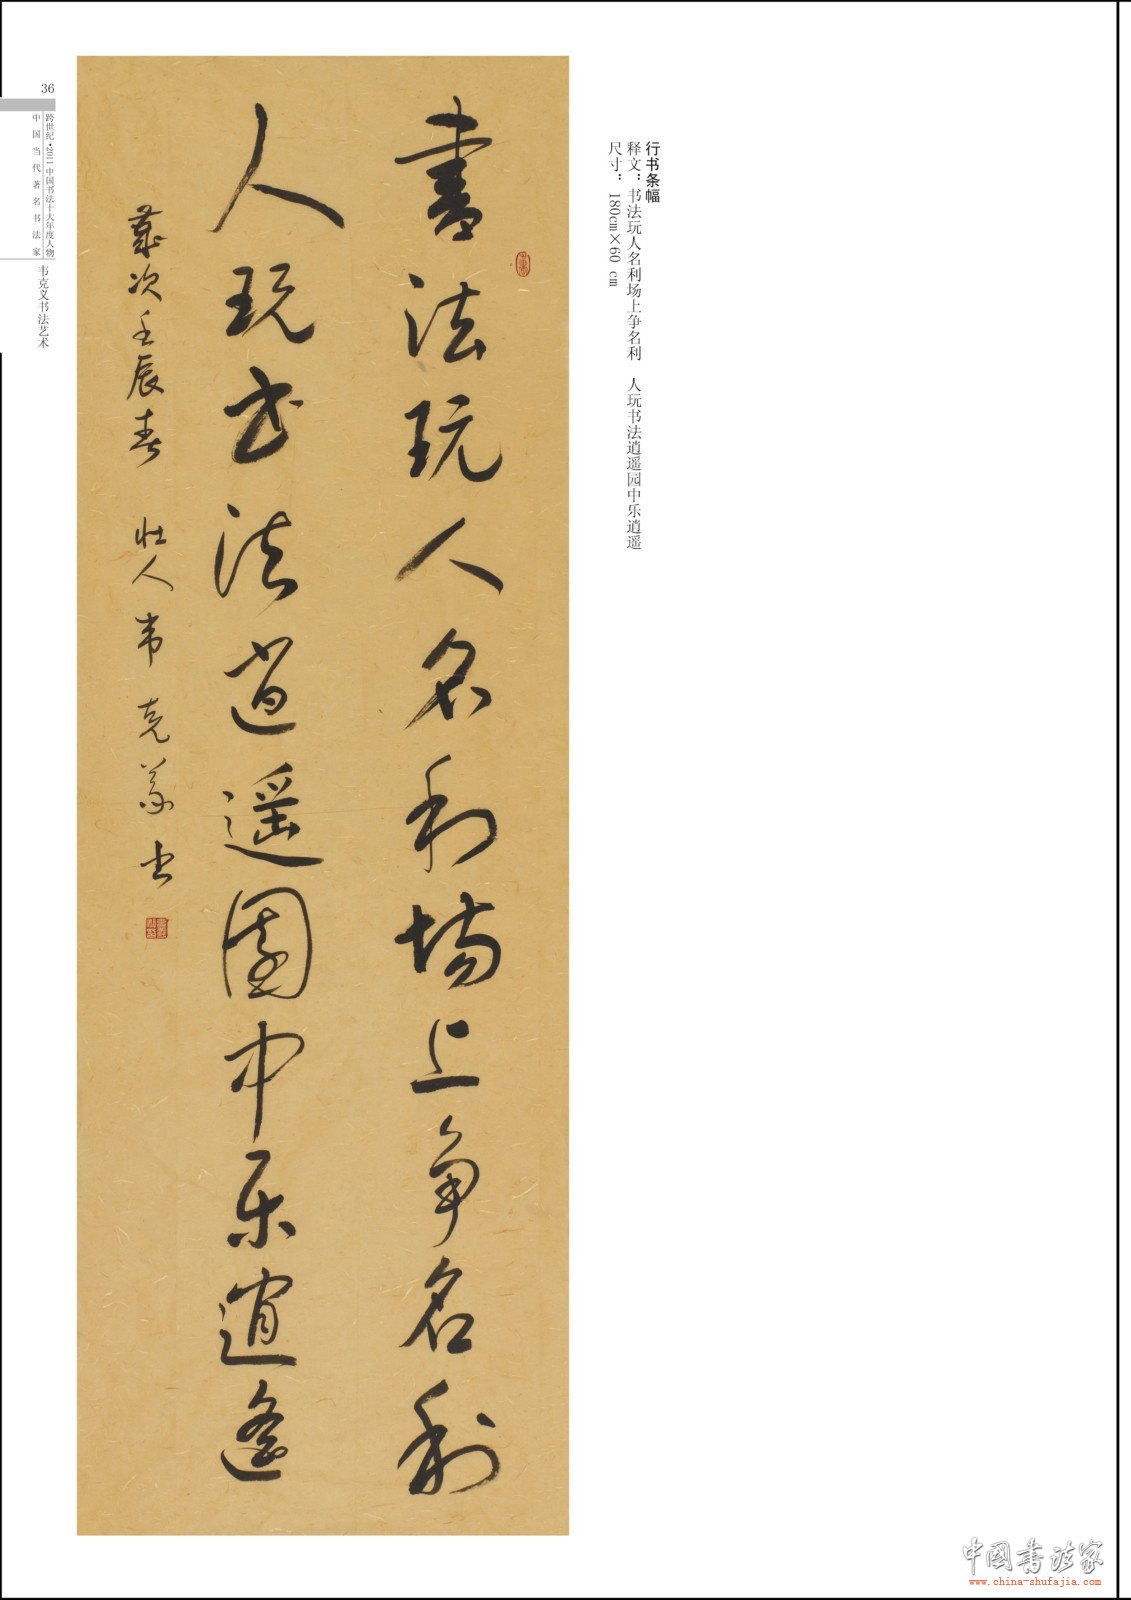 行书条幅
释文：书法玩人名利场上争名利　人玩书法逍遥园中乐逍遥
尺寸：180cm×60 cm
書法玩人名利场上争名利
人玩书法逍遥園中乐逍遥
歲次壬辰春 壮人韦克義书
36
跨世纪·2011中国书法十大年度人物
中国当代著名书法家
韦克义书法艺术
中国书法家
www.china-shufajia.com